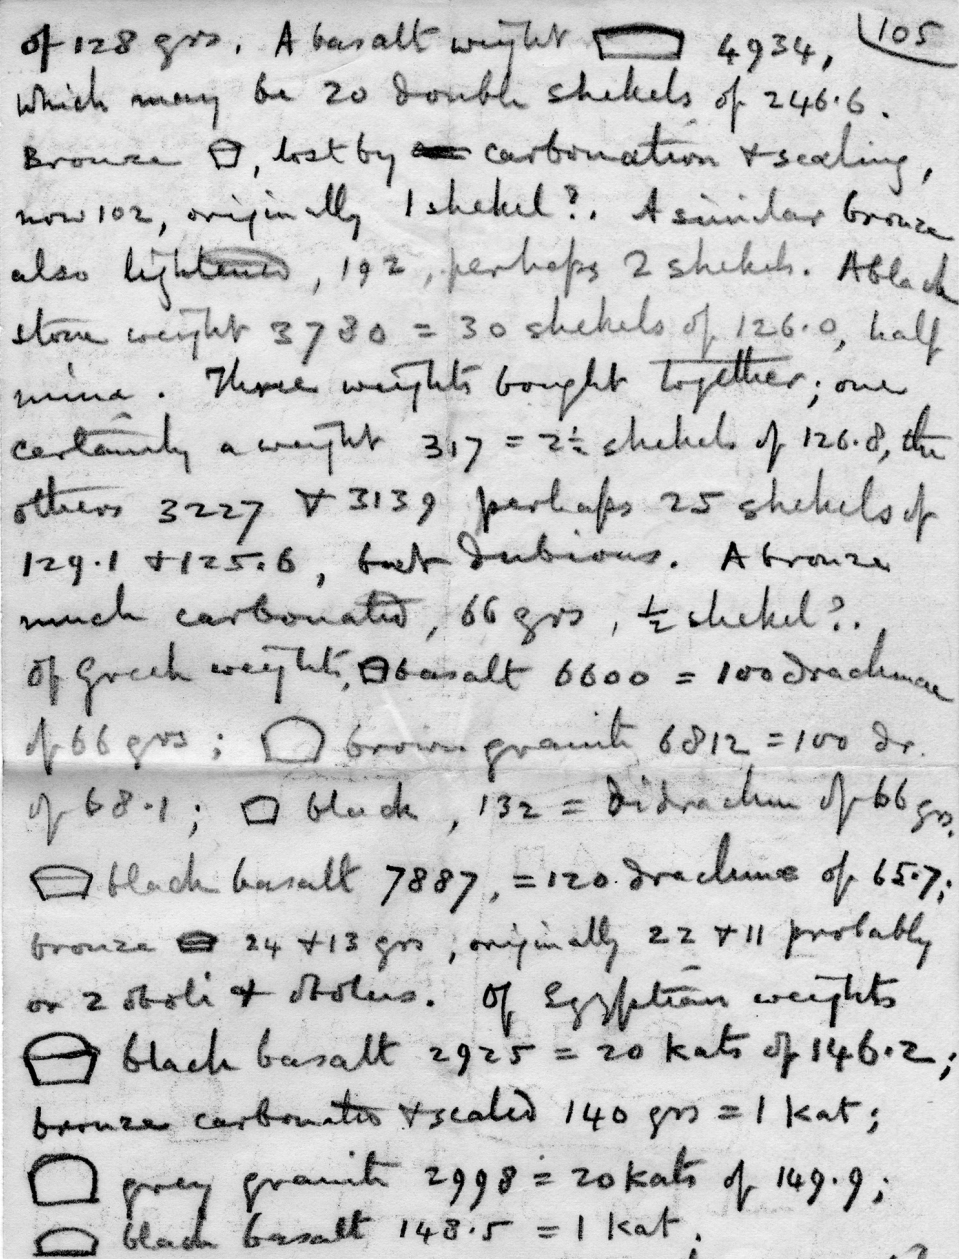 105
of 128 grs. A basalt weight 4934,
which may be 20 double shekels of 246.6.
Bronze, lost by carbonation + scaling,
now 102, originally 1 shekel?. A similar bronze
also lightened, 192, perhaps 2 shekels. A black
stone weight 3780 = 30 shekels of 126.0, half
mina. Three weights bought together; one
certainly a weight 317 = 2½ shekels of 126.8, the
others 3227 + 3139 perhaps 25 shekels of
129.1 + 125.6, but dubious. A bronze
much carbonated, 66 grs, ½ shekel?.
Of Greek weights, basalt 6600 = 100 drachmae
of 66 grs; brown granite 6812 = 100 dr.
of 68.1; black, 132 = didrachm of 66 grs.
black basalt 7887, = 120 drachmae of 65.7;
bronze 24 + 13 grs, originally 22 + 11 probably
or 2 oboli + obolus. Of Egyptian weights
black basalt 2925 = 20 kats of 146.2;
bronze carbonated + scaled 140 grs = 1 kat;
grey granite 2998 = 20 kats of 149.9;
black basalt 148.5 = 1 kat.